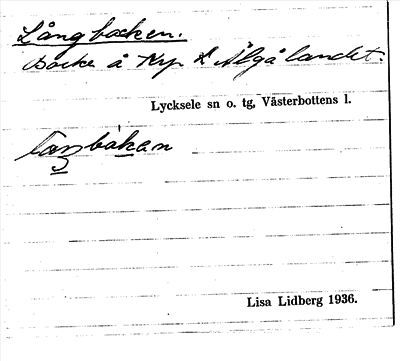 Långbäcken.
Bäck å Kp. l. Älgålandet.
Lycksele sn o. tg, Västerbottens l.
laŋbäkan
Lisa Lidberg 1936.